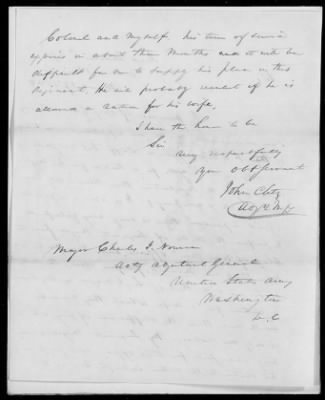 Colonel and myself. his term of service
expires in about three Months and it will be
difficult for me to supply his place in this
Regiment. He will probably reenlist if he is
allowed a ration for his wife.
I have the honor to be
Sir
Very respectfully
Your Obt Servant
John
Major Charles J.
Actg Adjutant General
United States Army
Washington
D.C